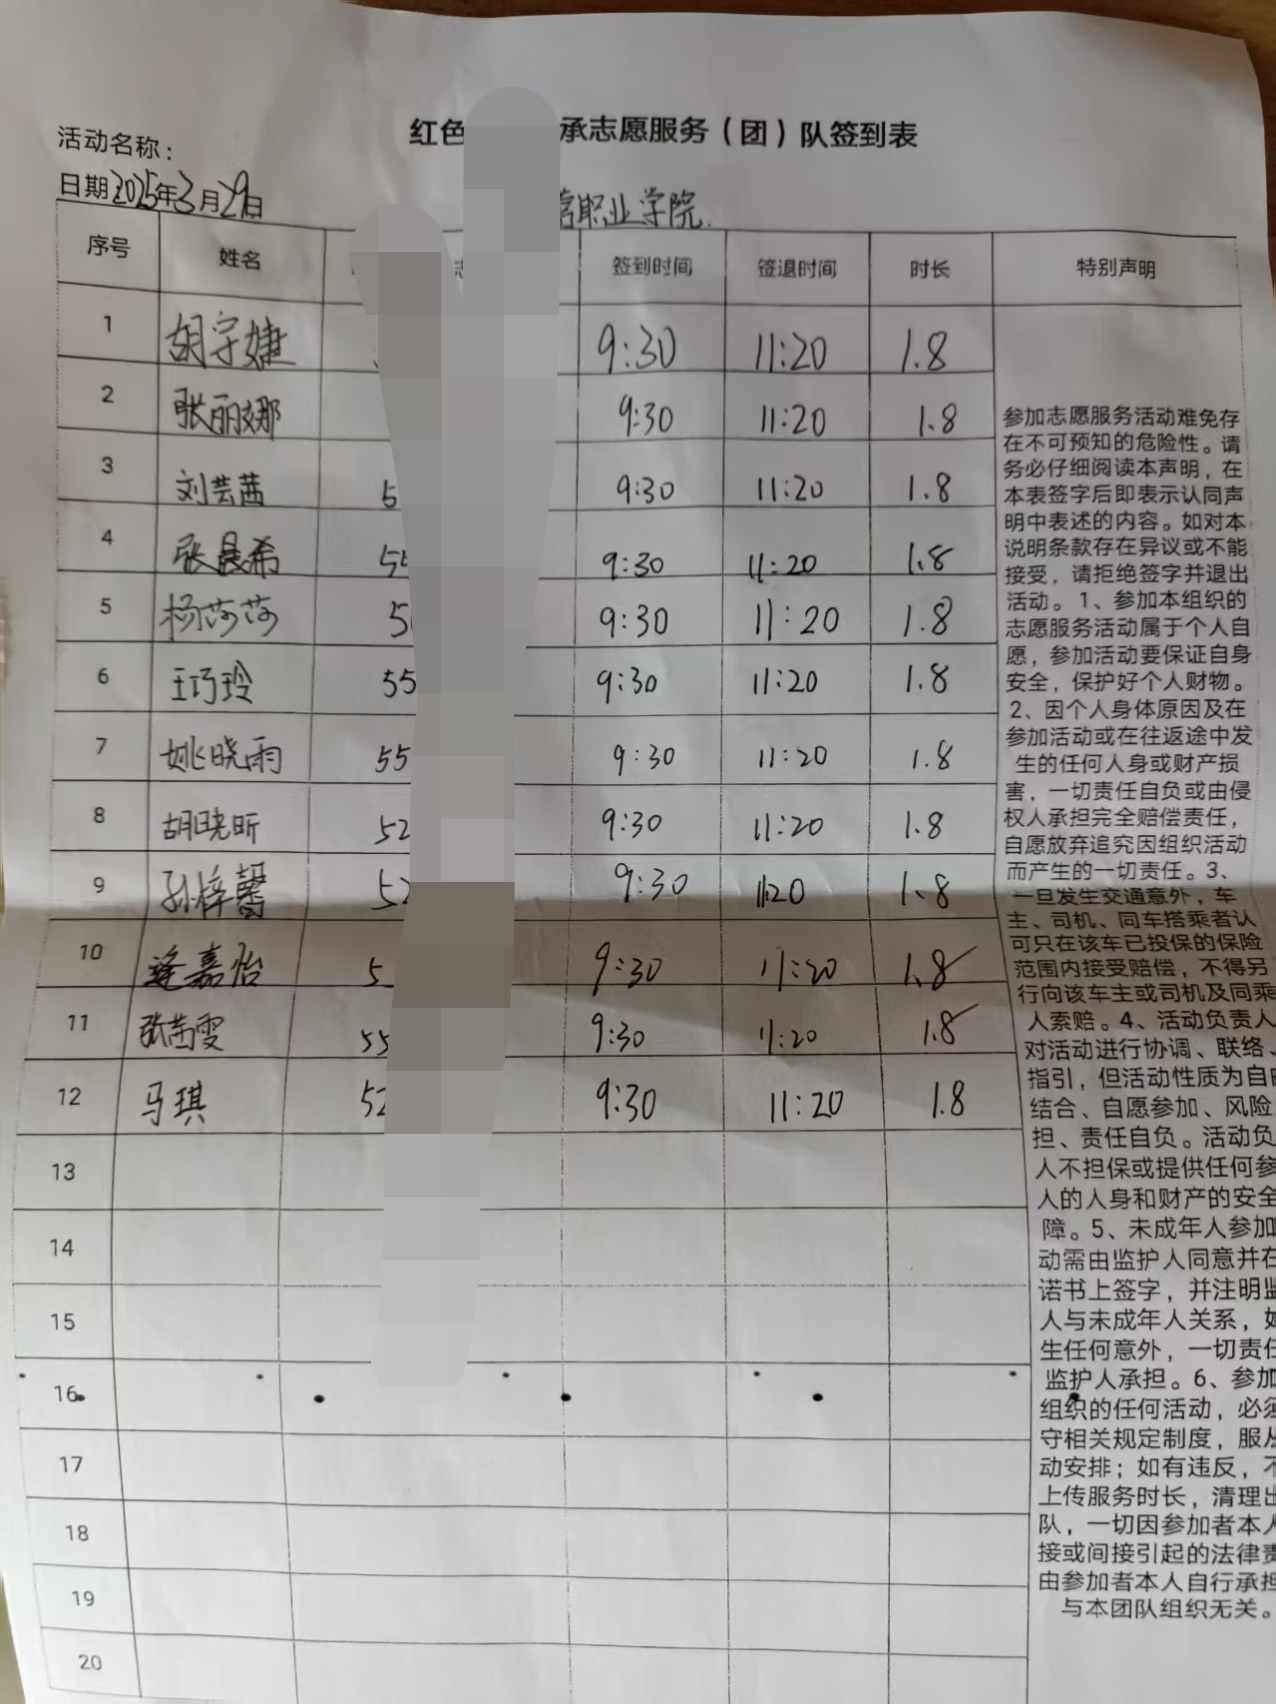 红色 承志愿服务（团）队签到表
活动名称：
日期2025年3月29日
职业学院.
序号 姓名 签到时间 签退时间 时长 特别声明
1 胡宇婕 9:30 11:20 1.8
2 张丽娜 9:30 11:20 1.8
3 刘芸茜 5 9:30 11:20 1.8
4 张晨希 55 9:30 11:20 1.8
5 杨莎莎 5 9:30 11:20 1.8
6 王巧玲 55 9:30 11:20 1.8
7 姚晓雨 55 9:30 11:20 1.8
8 胡晓昕 52 9:30 11:20 1.8
9 孙梓馨 52 9:30 11:20 1.8
10 逄嘉怡 5 9:30 11:20 1.8
11 张茜雯 55 9:30 11:20 1.8
12 马琪 52 9:30 11:20 1.8
13
14
15
16
17
18
19
20
参加志愿服务活动难免存
在不可预知的危险性。请
务必仔细阅读本声明，在
本表签字后即表示认同声
明中表述的内容。如对本
说明条款存在异议或不能
接受，请拒绝签字并退出
活动。1、参加本组织的
志愿服务活动属于个人自
愿，参加活动要保证自身
安全，保护好个人财物。
2、因个人身体原因及在
参加活动或在往返途中发
生的任何人身或财产损
害，一切责任自负或由侵
权人承担完全赔偿责任，
自愿放弃追究因组织活动
而产生的一切责任。3、
一旦发生交通意外，车
主、司机、同车搭乘者认
可只在该车已投保的保险
范围内接受赔偿，不得另
行向该车主或司机及同乘
人索赔。4、活动负责人
对活动进行协调、联络、
指引，但活动性质为自由
结合、自愿参加、风险
担、责任自负。活动负
人不担保或提供任何参
人的人身和财产的安全
障。5、未成年人参加
动需由监护人同意并在
诺书上签字，并注明监
人与未成年人关系，如
生任何意外，一切责任
监护人承担。6、参加
组织的任何活动，必须
守相关规定制度，服从
动安排；如有违反，不
上传服务时长，清理出
队，一切因参加者本人
接或间接引起的法律责
由参加者本人自行承担
与本团队组织无关。